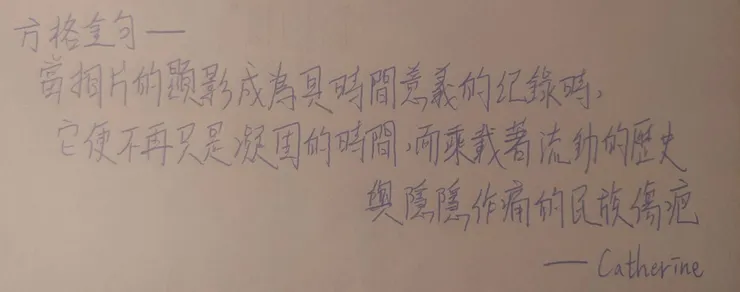 方格金句—
當相片的顯影成為具時間意義的纪錄時,
它便不再只是凝固的時間,而乘載著流動的歷史
與隱隱作痛的民族傷疤
— Catherine